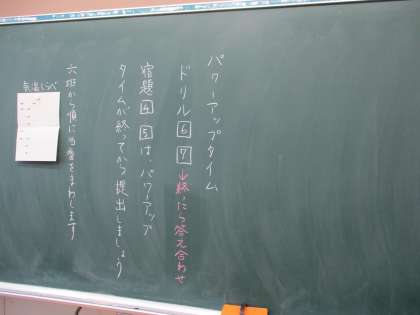 パワーアップタイム
ドリル 6 7 ↓終ったら答え合わせ
宿題 4 5 は、パワーアップ
タイムが終ってから提出しましょう
気温しらべ
六班から順に当番をまわします